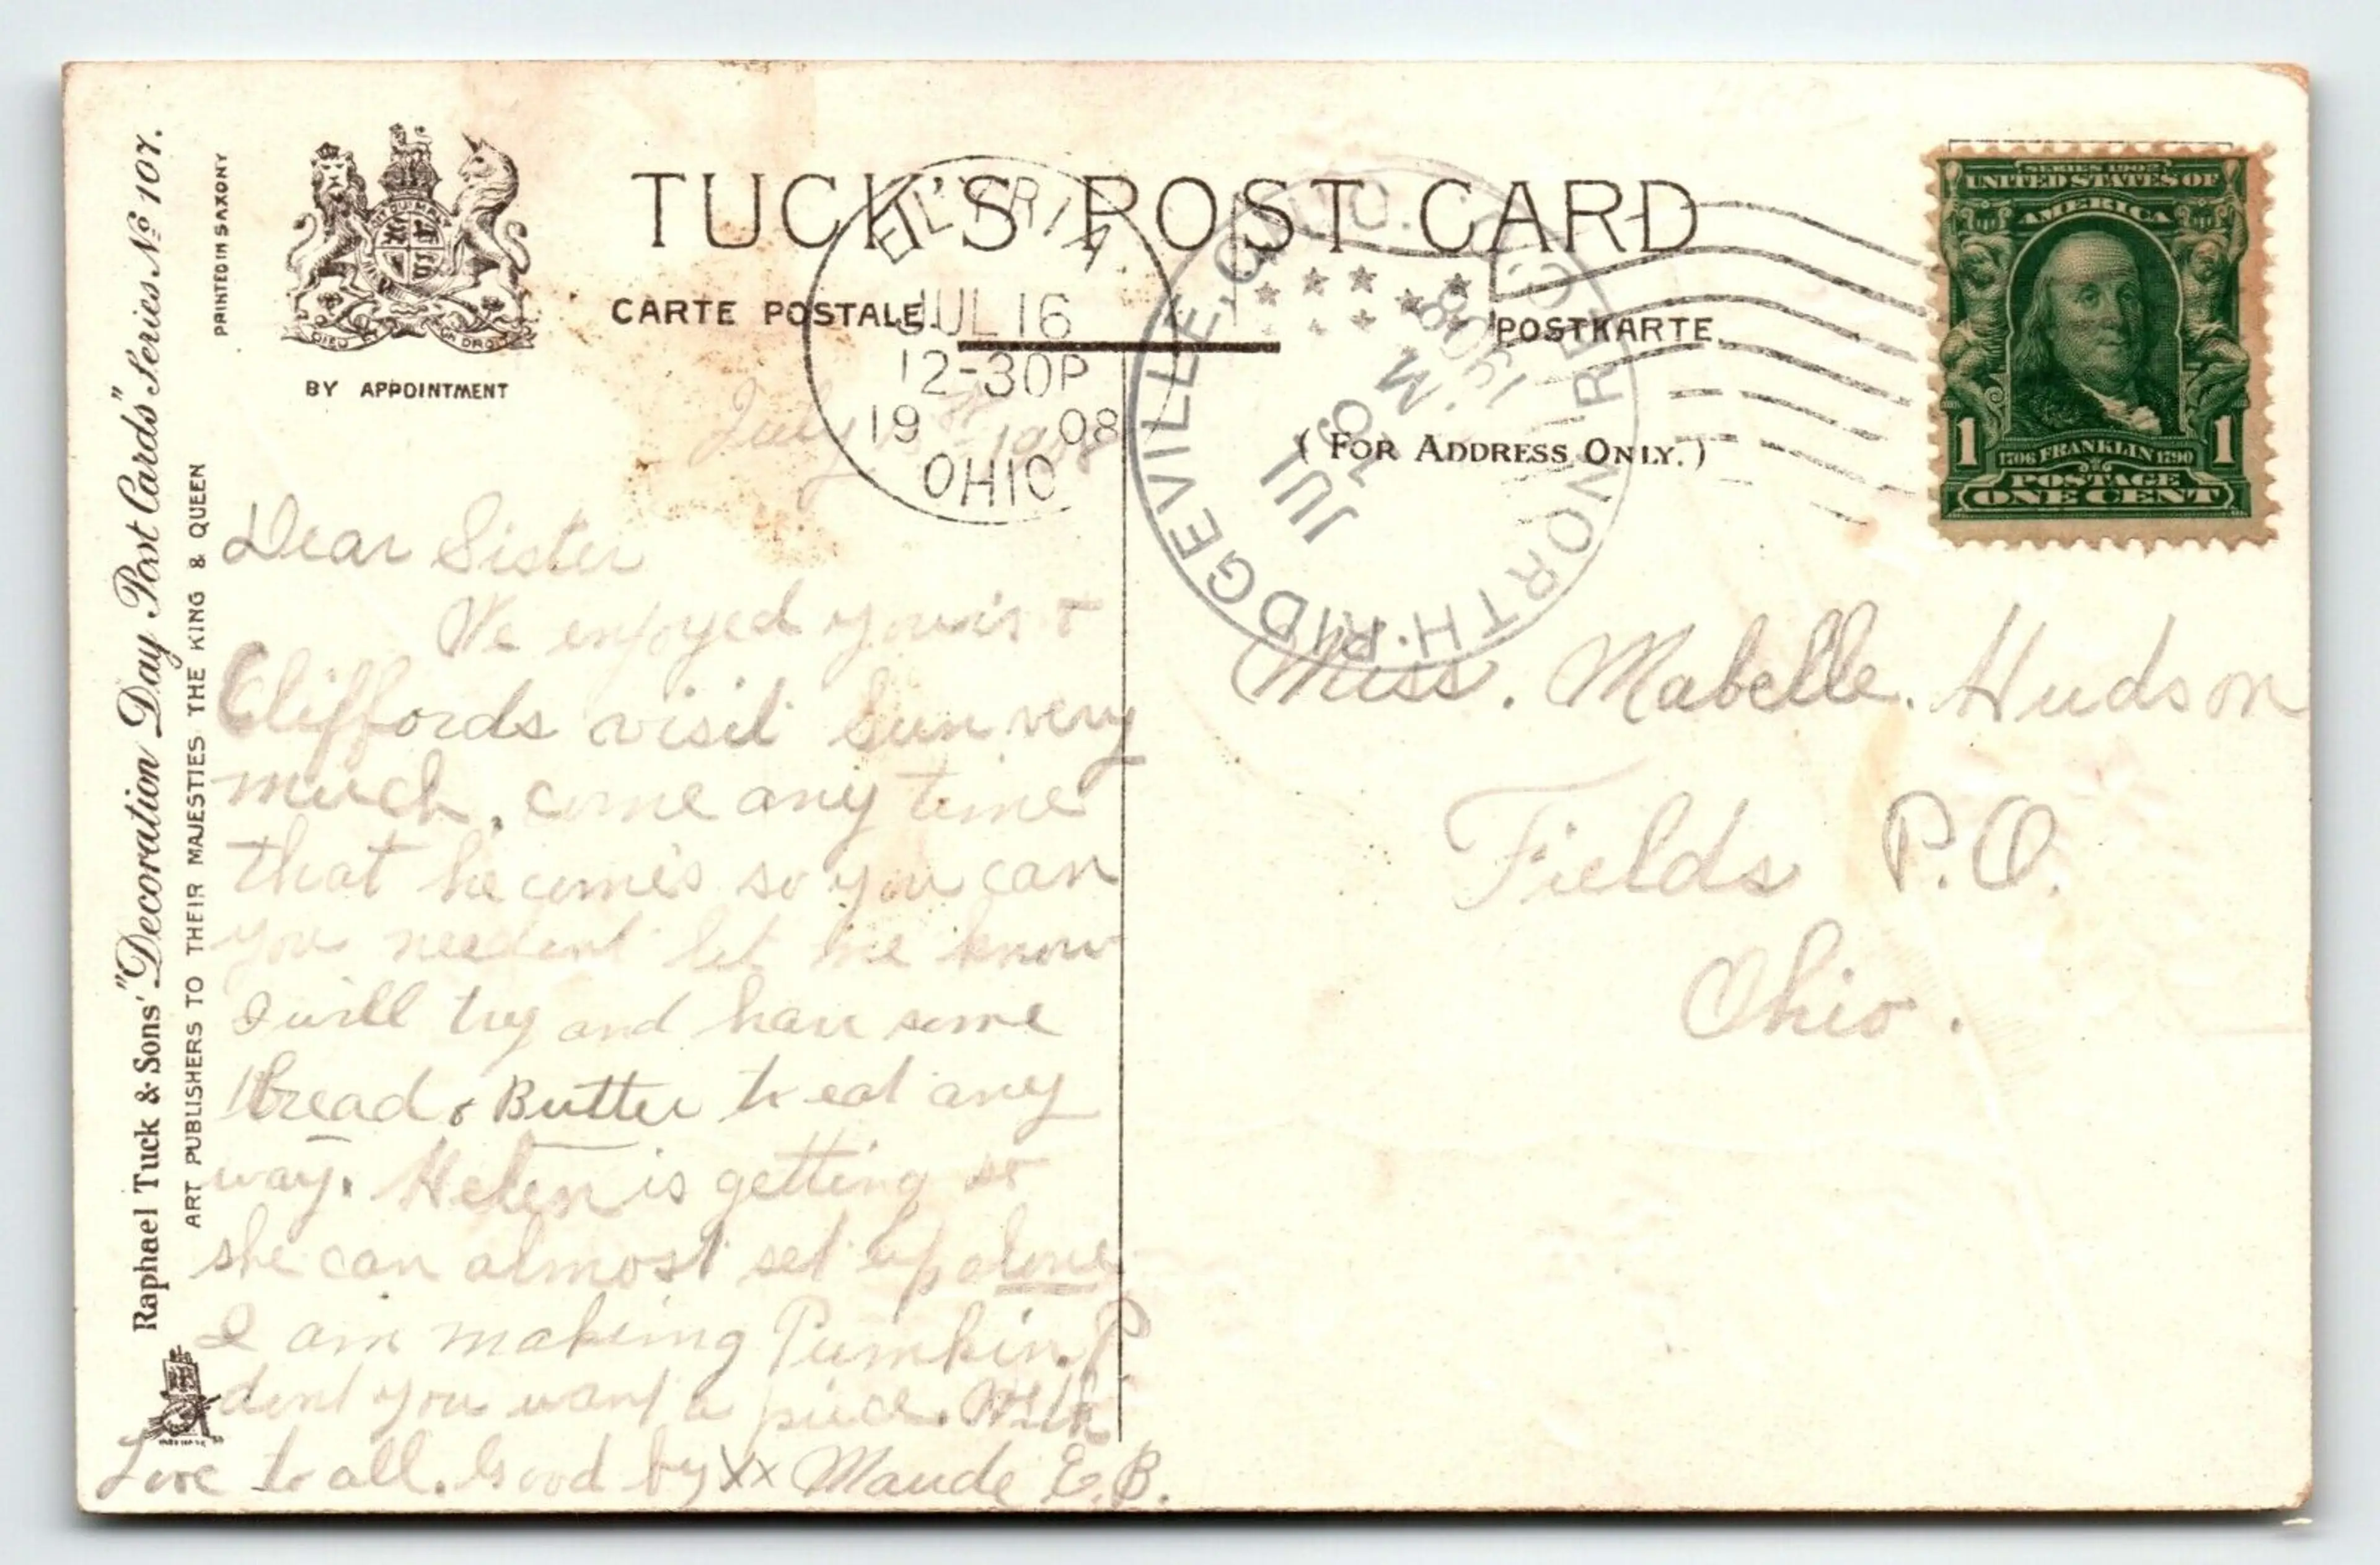 Raphael Tuck & Sons' "Decoration Day Post Cards" Series № 107.
ART PUBLISHERS TO THEIR MAJESTIES THE KING & QUEEN
PRINTED IN SAXONY
DIEU ET MON DROIT
BY APPOINTMENT
TUCK'S POST CARD
CARTE POSTALE
POSTKARTE
( FOR ADDRESS ONLY. )
ELYRIA
JUL 16
12-30P
19 08
OHIO
NORTH RIDGEVILLE, OHIO.
REC'D
JUL 16
M
1908
SERIES 1902
UNITED STATES OF
AMERICA
1 1706 FRANKLIN 1790 1
POSTAGE
ONE CENT
July 1908
Dear Sister
We enjoyed yours &
Cliffords visit Sun very
much, come any time
that he comes so you can
you needent let me know
I will try and have some
Bread & Butter to eat any
way. Helen is getting so
she can almost set up alone
I am making Pumkin. P
dont you want a piece. With
Love to all. Good by xx Maude E. B.
Miss. Mabelle. Hudson
Fields P.O.
Ohio.